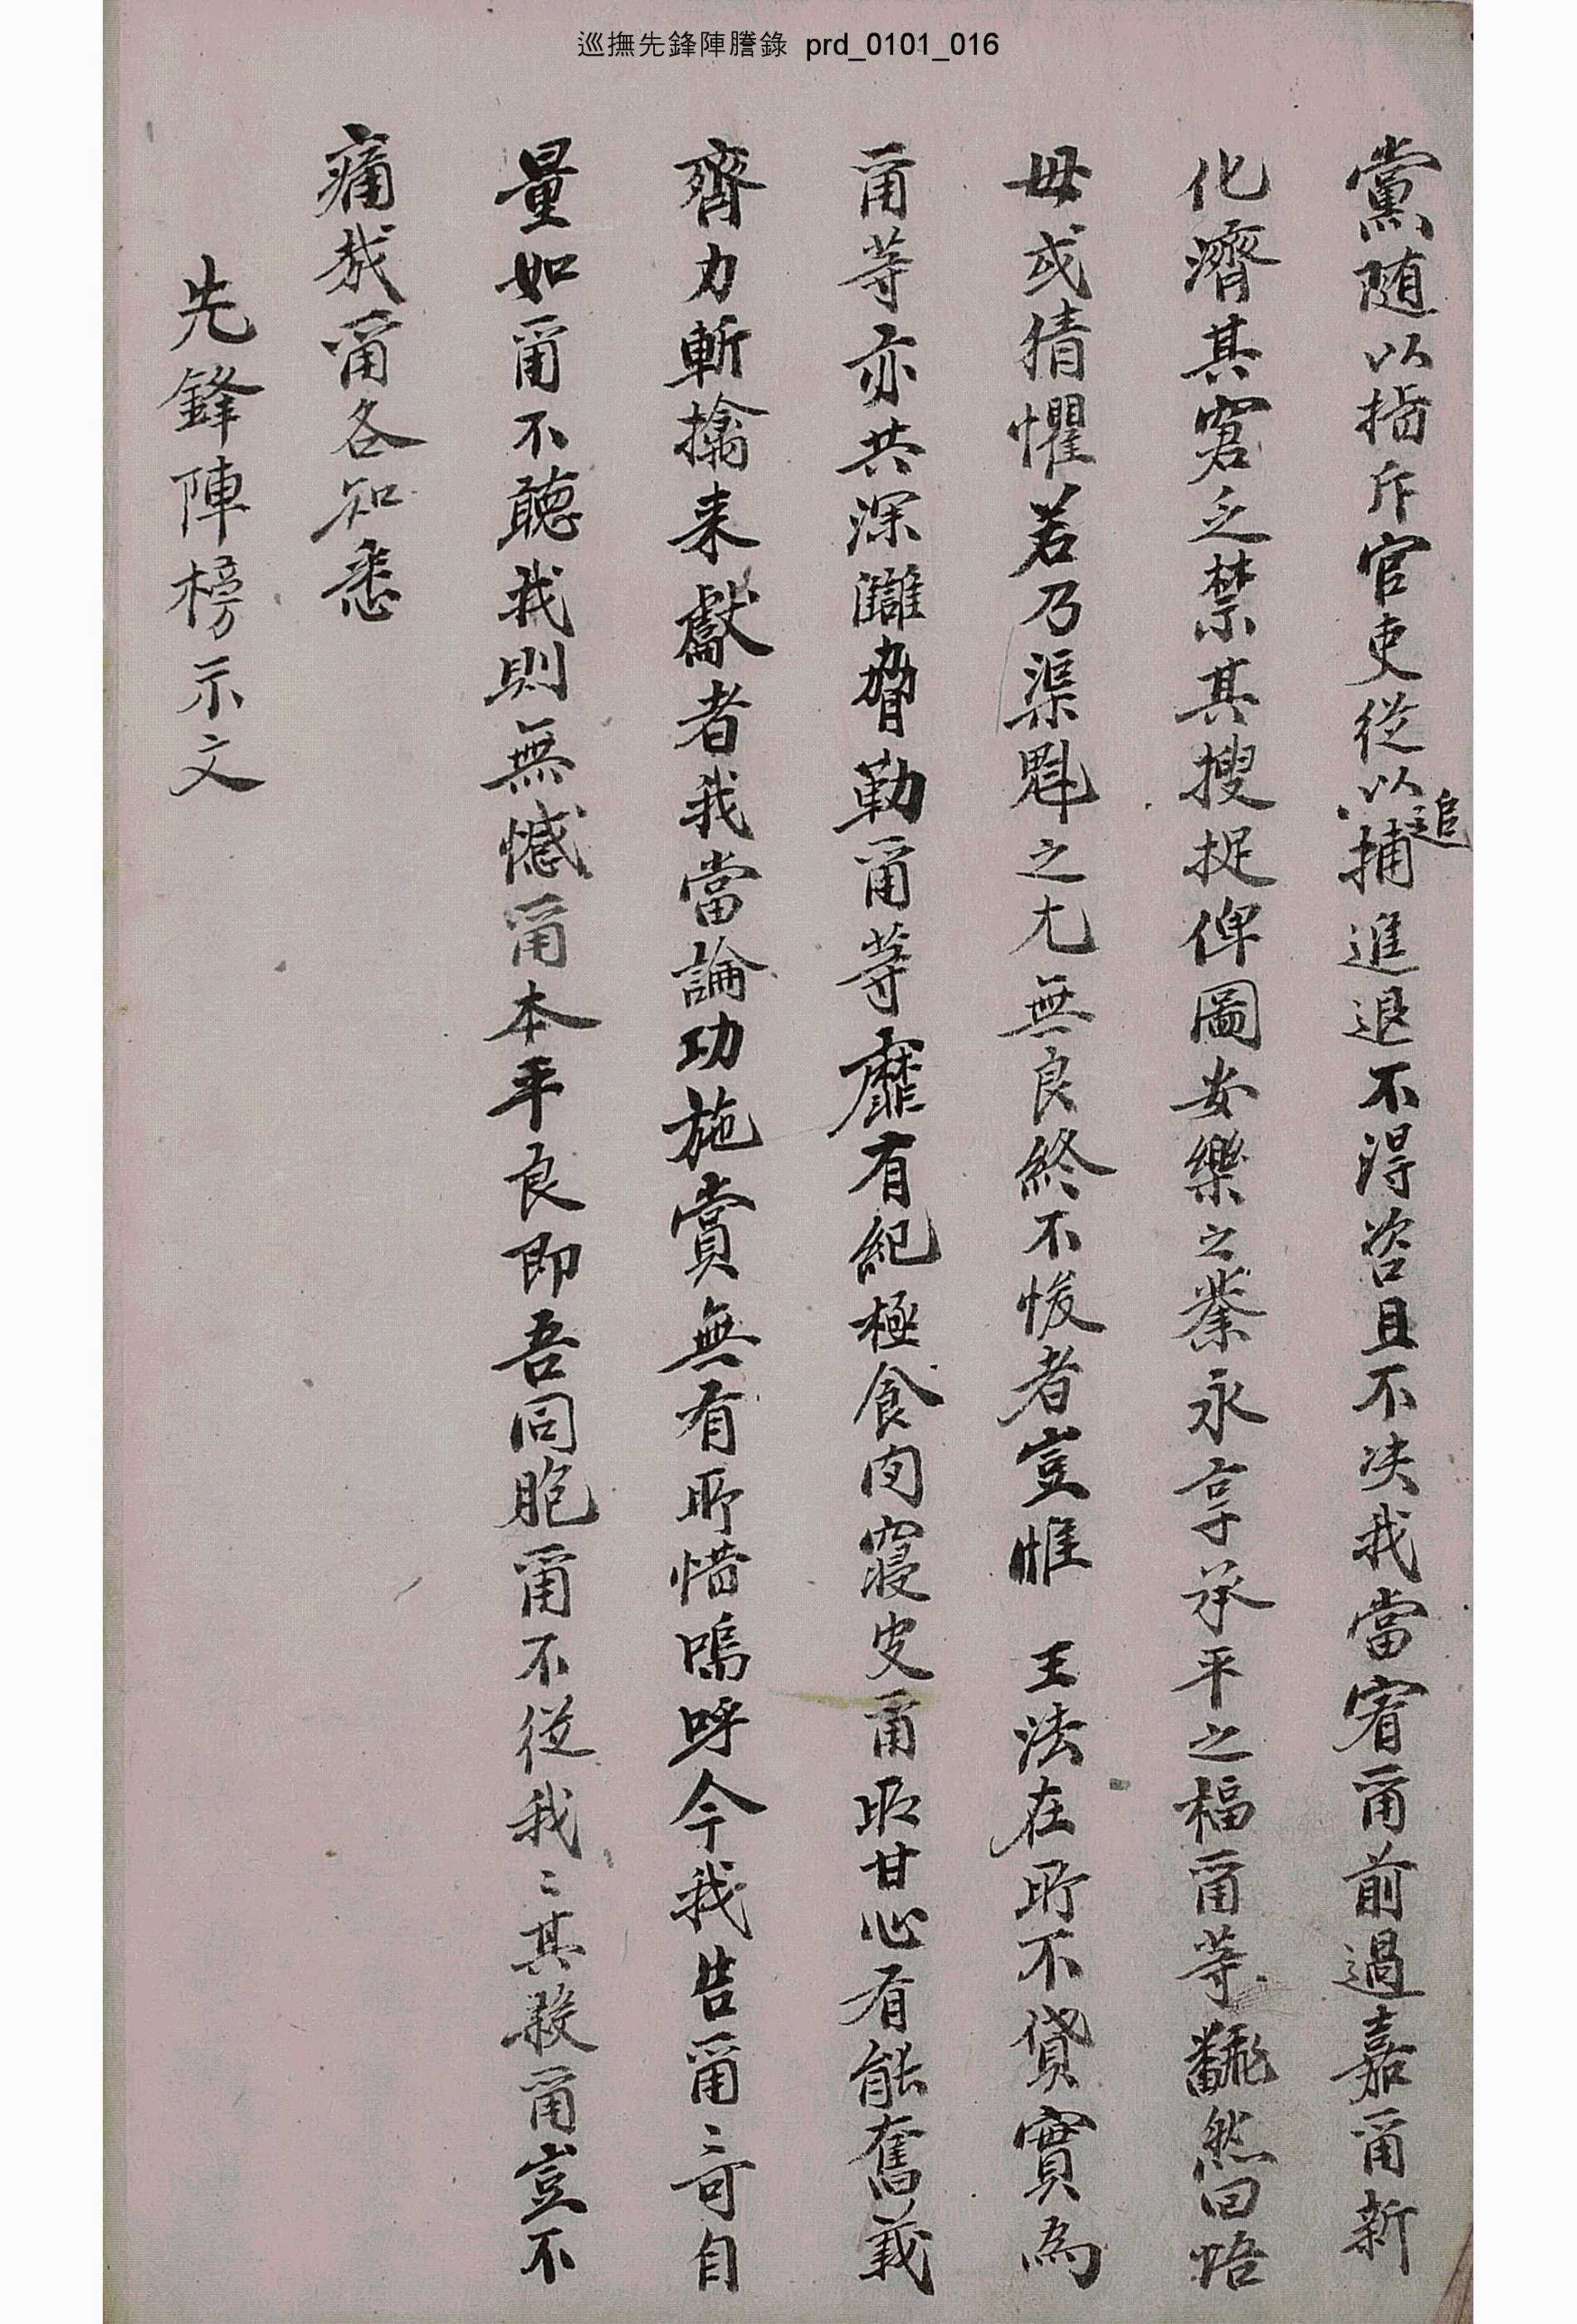 巡撫先鋒陣謄錄 prd_0101_016
黨随以指斥官吏從以追捕進退不得咨且不决我當宥甭前過嘉甭新
化濟其窘乏禁其搜捉俾圖安樂之業永享承平之福甭等飜然回悟
毋或猜懼若乃渠魁之尤無良終不悛者豈惟 王法在所不貸實爲
甭等亦共深讎脅勒甭等靡有紀極食肉寢皮甭所甘心有能奮義
齊力斬擒来獻者我當論功施賞無有所惜嗚呼今我告甭〻可自
量如甭不聽我則無憾甭本平良即吾同胞甭不從我〻其殺甭豈不
痛哉甭各知悉
先鋒陣榜示文